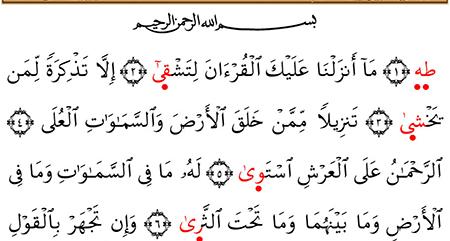 بسم الله الرحمن الرحيم
طه ﴿١﴾ مَآ أَنزَلْنَا عَلَيْكَ ٱلْقُرْءَانَ لِتَشْقَىٰٓ ﴿٢﴾ إِلَّا تَذْكِرَةً لِّمَن
يَخْشَىٰ ﴿٣﴾ تَنزِيلاً مِّمَّنْ خَلَقَ ٱلْأَرْضَ وَٱلسَّمَٰوَٰتِ ٱلْعُلَى ﴿٤﴾
ٱلرَّحْمَٰنُ عَلَى ٱلْعَرْشِ ٱسْتَوَىٰ ﴿٥﴾ لَهُۥ مَا فِى ٱلسَّمَٰوَٰتِ وَمَا فِى
ٱلْأَرْضِ وَمَا بَيْنَهُمَا وَمَا تَحْتَ ٱلثَّرَىٰ ﴿٦﴾ وَإِن تَجْهَرْ بِٱلْقَوْلِ